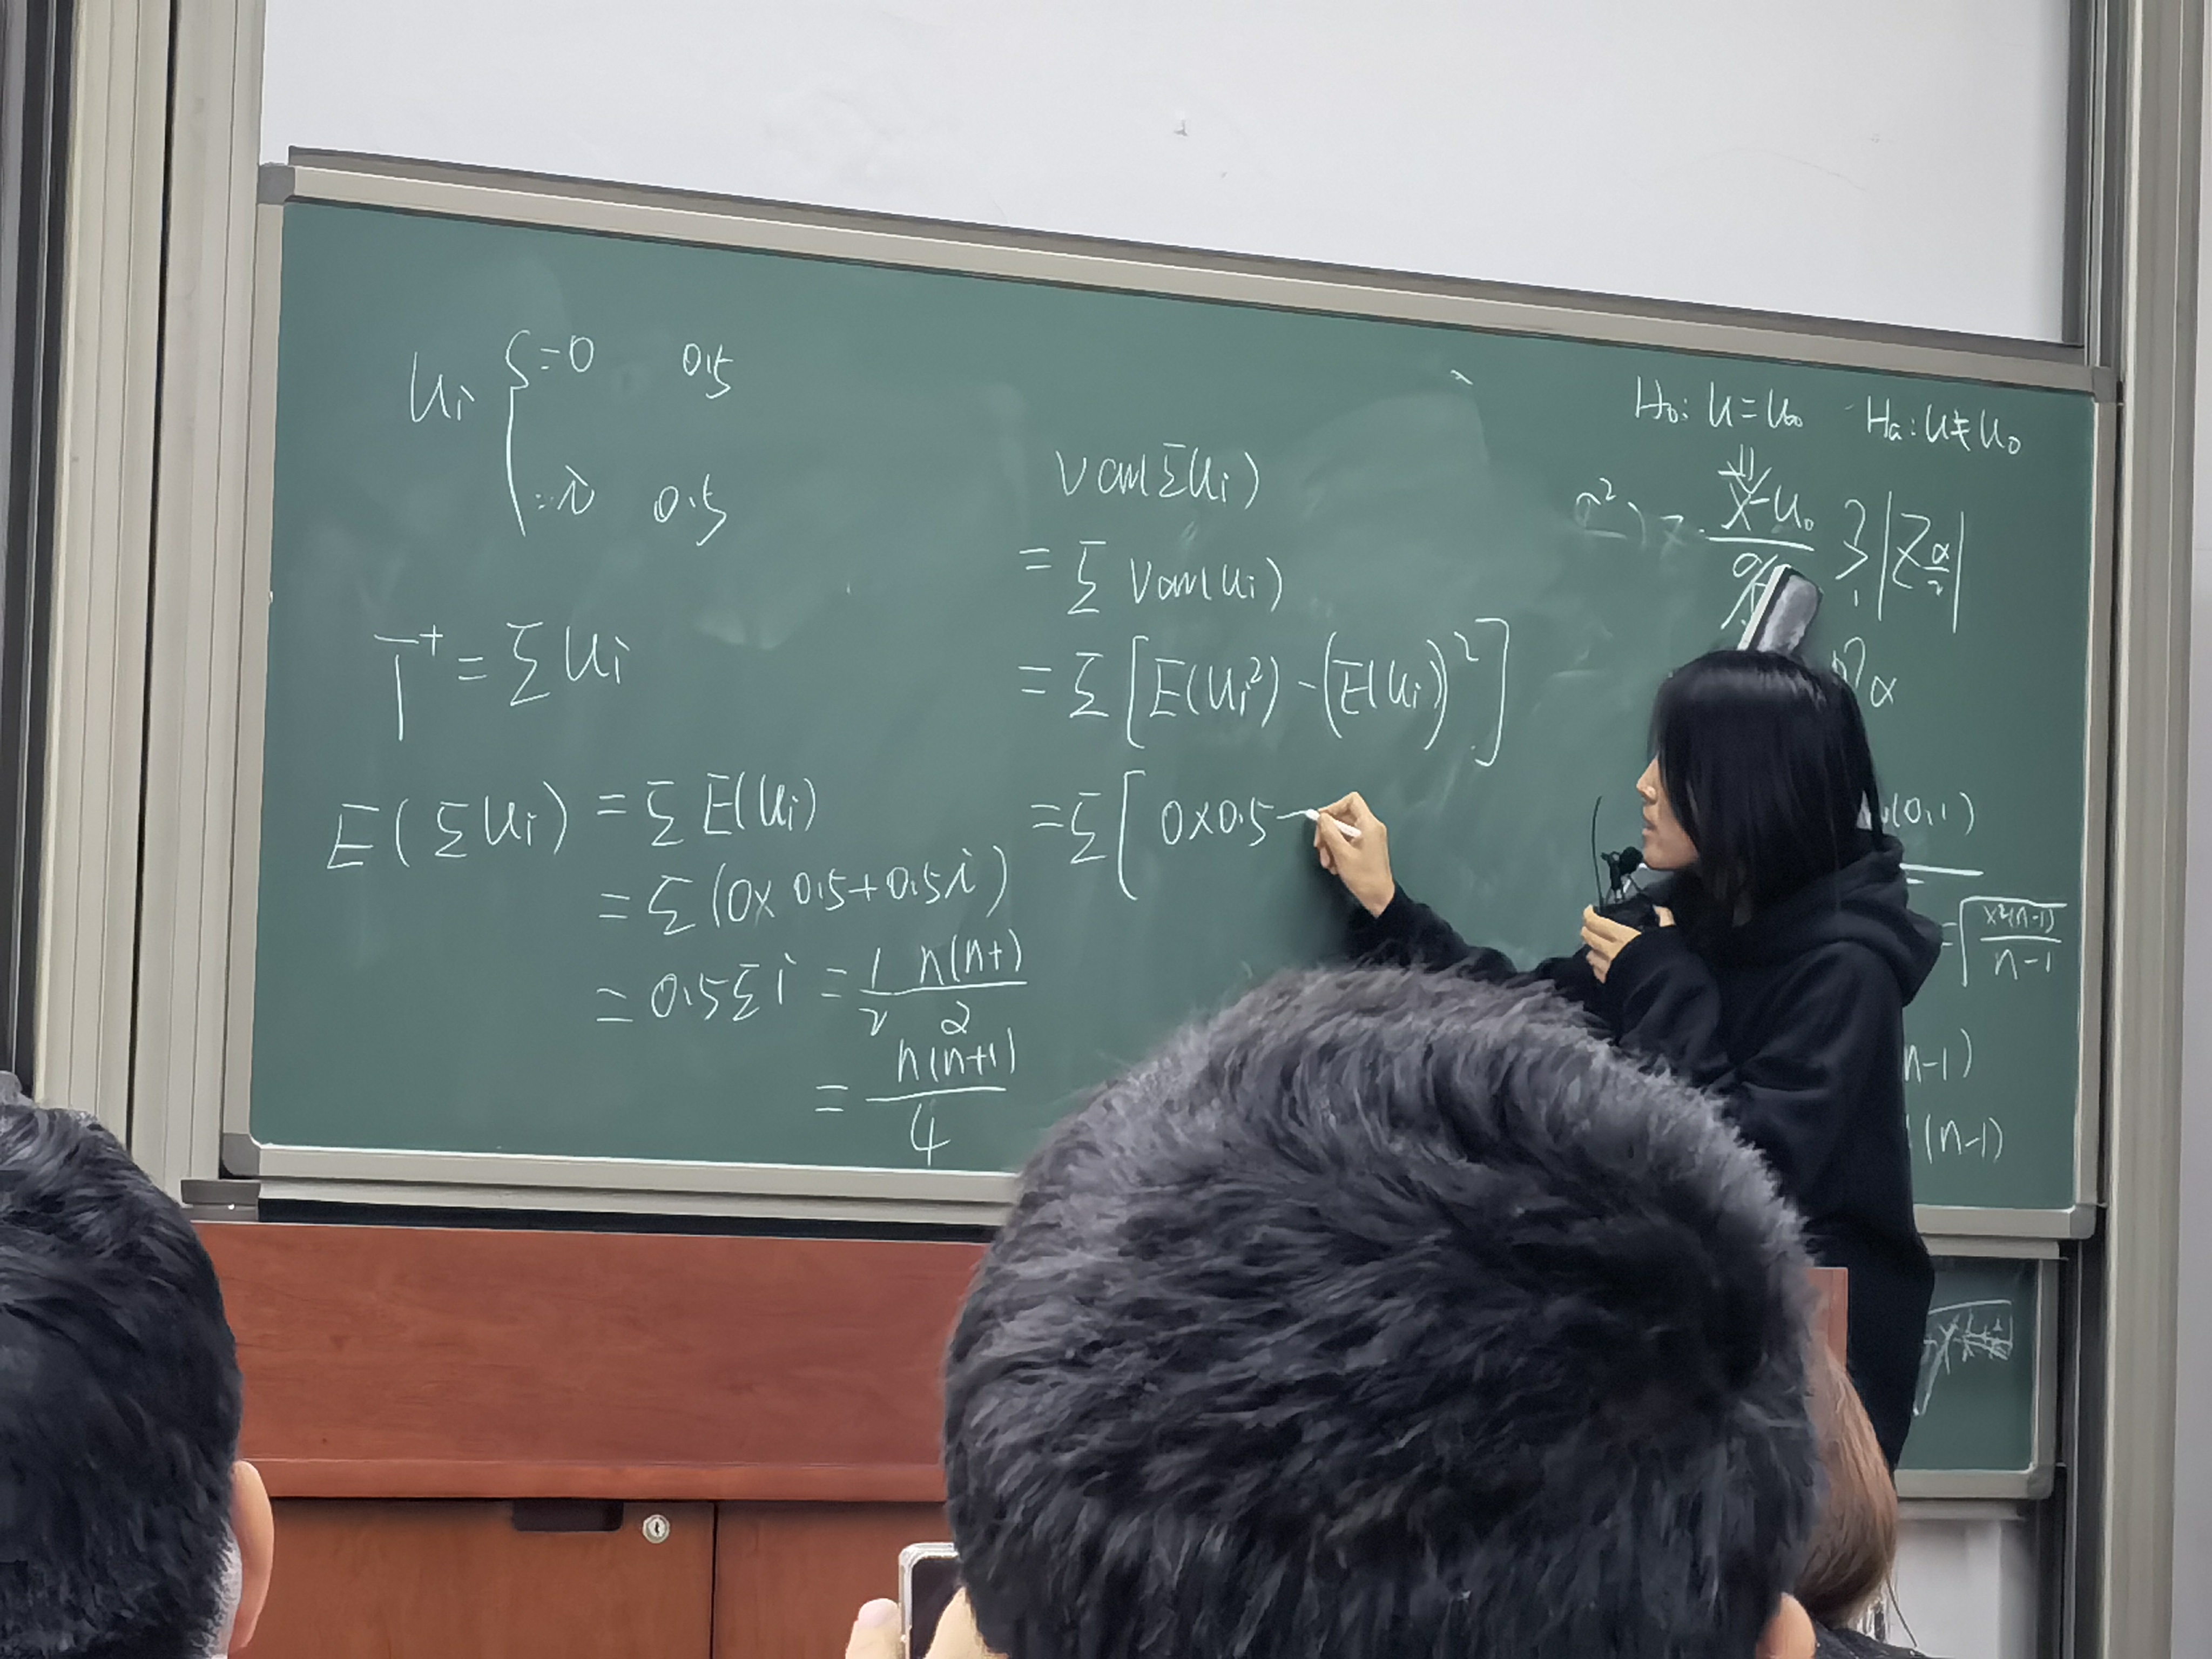 Ui { =0 0.5
=i 0.5
T⁺ = ΣUi
E(ΣUi) = ΣE(Ui)
= Σ(0×0.5+0.5i)
= 0.5Σi = 1/2 n(n+)/2
= n(n+1)/4
Var(ΣUi)
= ΣVar(Ui)
= Σ[E(Ui²)-(E(Ui))²]
= Σ[0×0.5
H₀: u=u₀ Hₐ: u≠u₀
σ²) X-u₀ |Z α/2|
α
(0,1)
= √(x²(n-1)/n-1)
n-1)
(n-1)